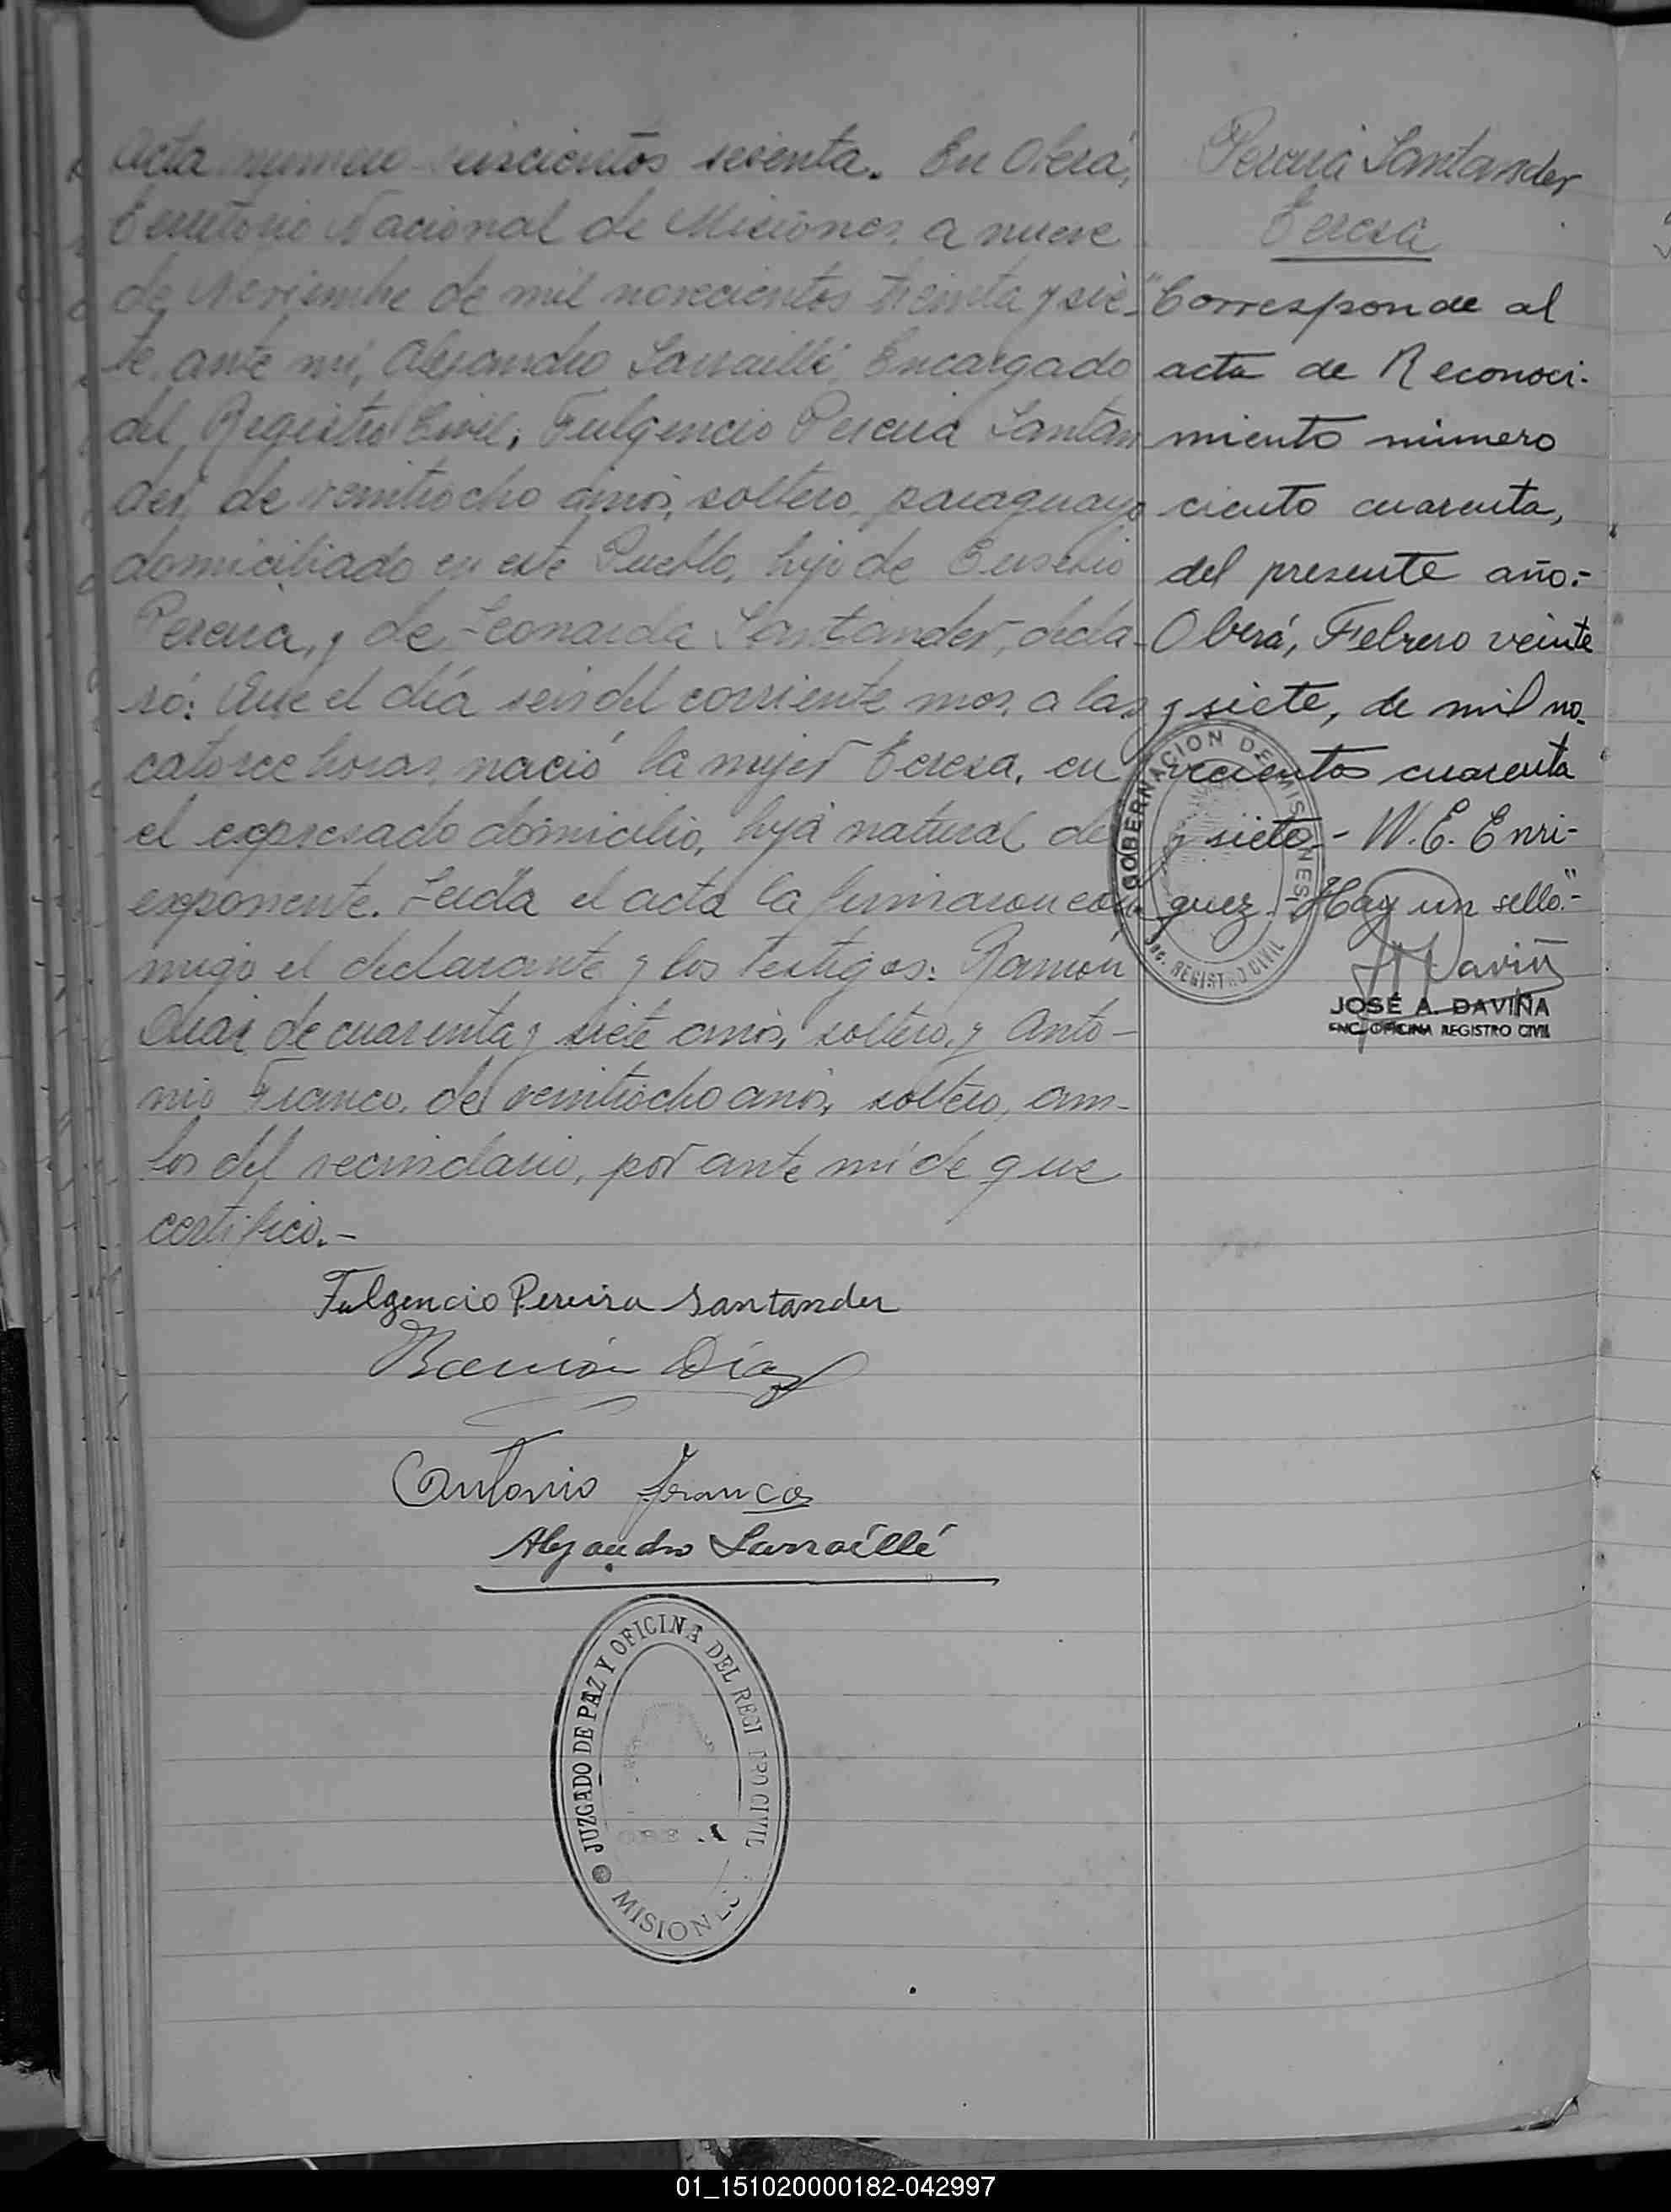 Acta numero seiscientos sesenta. En Oberá,
Territorio Nacional de Misiones, a nueve
de Noviembre de mil novecientos treinta y sie-
te, ante mi, Alejandro Larraillé, Encargado
del Registro Civil, Fulgencio Pereira Santan
der, de veintiocho años, soltero, paraguayo
domiciliado en este Pueblo, hijo de Eusebio
Pereira, y de Leonarda Santander, decla-
ró: Que el día seis del corriente mes, a las
catorce horas, nació la mujer Teresa, en
el expresado domicilio, hija natural del
exponente. Leída el acta la firmaron con
migo el declarante y los testigos: Ramón
Diaz de cuarenta y siete años, soltero, y Anto-
nio Franco, de veintiocho años, soltero, am-
bos del vecindario, por ante mí de que
certifico.-
Fulgencio Pereira Santander
Ramón Díaz
Antonio Franco
Alejandro Larraillé
JUZGADO DE PAZ Y OFICINA DEL REGI TRO CIVIL
OBERA
MISIONES
Pereira Santander
Teresa
"Corresponde al
acta de Reconoci-
miento número
ciento cuarenta,
del presente año.-
Oberá, Febrero veinte
y siete, de mil no-
vecientos cuarenta
y siete.- W. E. Enri-
quez. Hay un sello."-
GOBERNACION DE MISIONES
REGISTRO CIVIL
JOSÉ A. DAVIÑA
ENC. OFICINA REGISTRO CIVIL
01_151020000182-042997